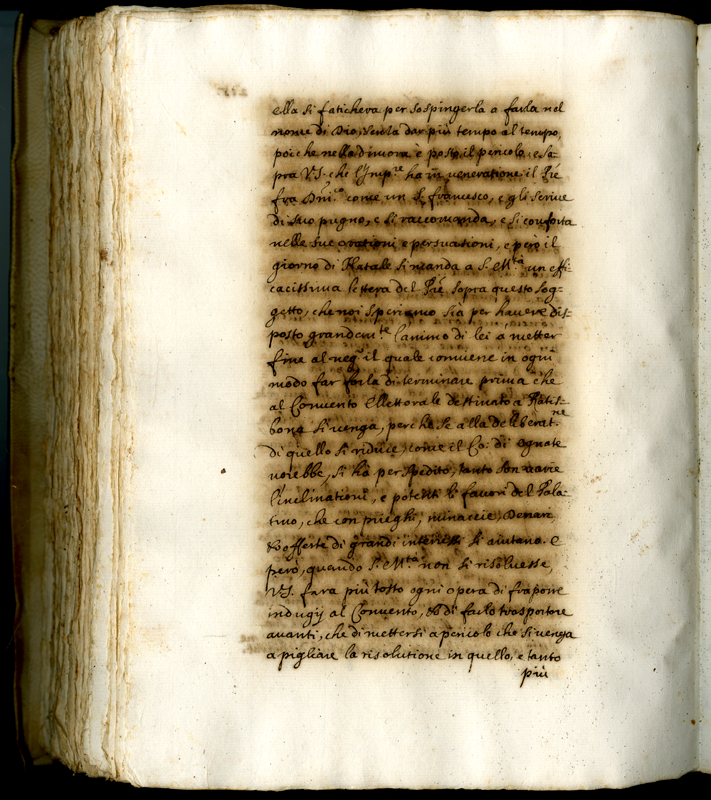 ella si faticheva per sospingerla a farla nel
nome di Dio, senza dar più tempo al tempo,
poiche nella dimora è posto il pericolo, e sa-
pra V.S. che l'Imp.re ha in veneratione il Pre
fra Dni.co come un S. francesco, e gli scrive
di suo pugno, e si raccomanda, e si conforta
nelle sue orationi e persuationi, e però il
giorno di Natale si manda a S. M.tà un effi-
cacissima lettera del Pre sopra questo sog-
getto, che noi speriamo sia per havere dis-
posto grandem.te l'animo di lei a metter
fine al neg.o il quale conviene in ogni
modo far farla di terminare prima che
al Convento Ellettorale destinato a Ratis-
bona si venga, perche se alla deliberat.ne
di quello si riduce, come il Co: di Ognate
vorebbe, si ha per spedito, tanto son varie
l'inclinationi, e potenti li favori del Pala-
tino, che con prieghi, minaccie, Denari
et offerte di grandi interessi si aiutano. E
però, quando S. M.tà non si risoluesse,
V.S. fara più tosto ogni opera di frapone
indugij al Convento, et di farlo trasportare
avanti, che di mettersi a pericolo che si venga
a pigliare la risolutione in quello, e tanto
più